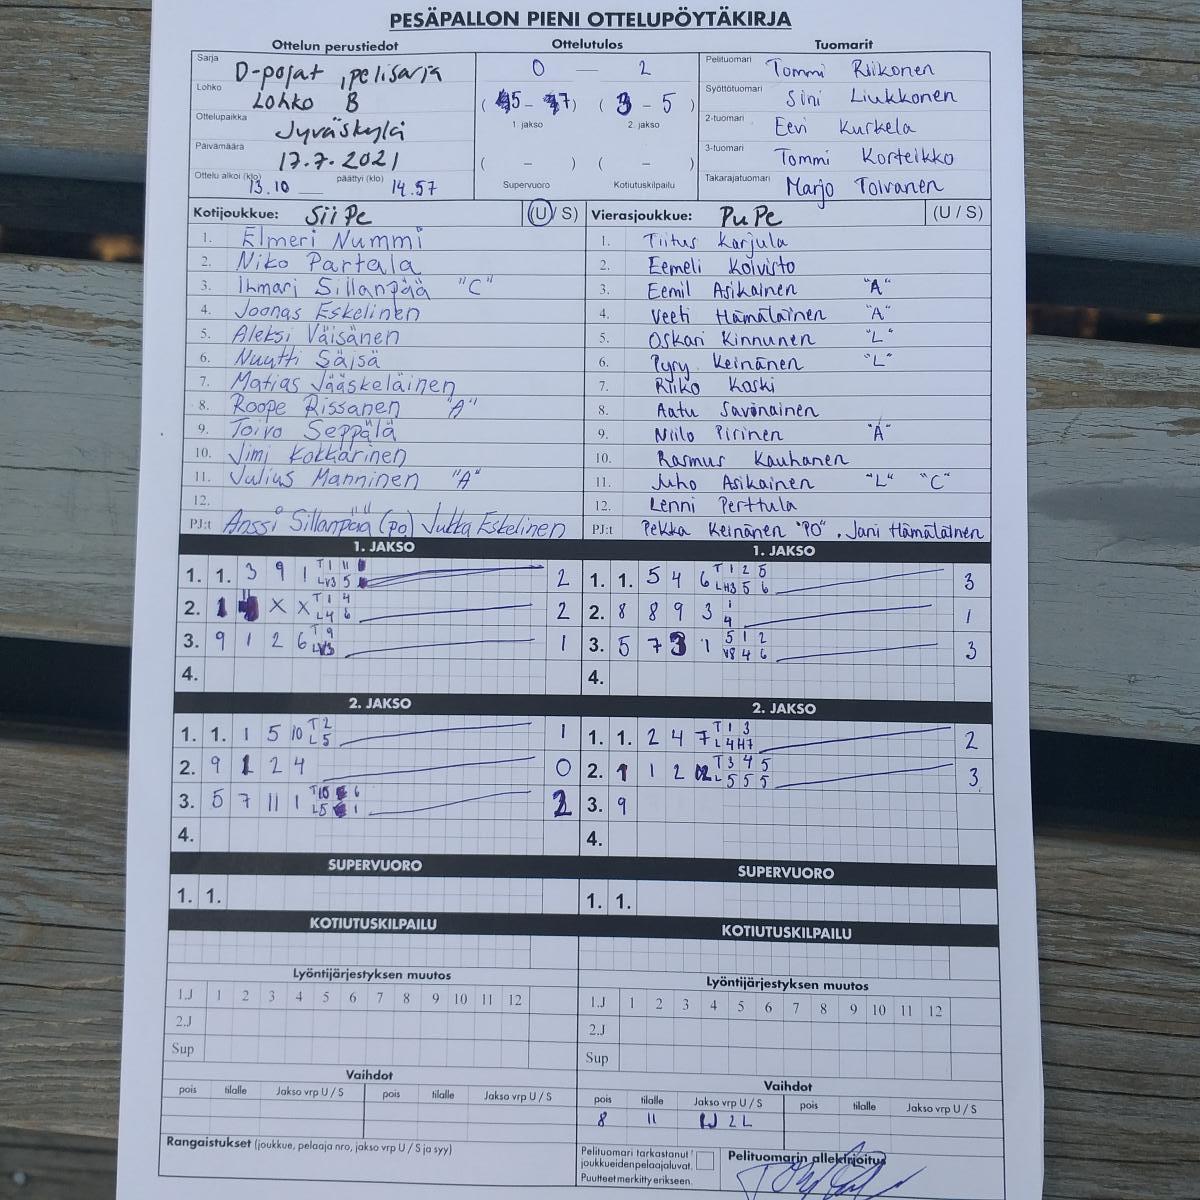 PESÄPALLON PIENI OTTELUPÖYTÄKIRJA
Ottelun perustiedot
Ottelutulos
Tuomarit
Sarja D-pojat, pelisarja
Lohko Lohko B
Ottelupaikka Jyväskylä
Päivämäärä 17.7.2021
Ottelu alkoi (klo) 13.10 päättyi (klo) 14.57
0 — 2
(5 - 7) (3 - 5)
1. jakso 2. jakso
( - ) ( - )
Supervuoro Kotiutuskilpailu
Pelituomari Tommi Riikonen
Syöttötuomari Sini Liukkonen
2-tuomari Eevi Kurkela
3-tuomari Tommi Korteikko
Takarajatuomari Marjo Toivanen
Kotijoukkue: SiiPe (U / S)
1. Elmeri Nummi
2. Niko Partala
3. Ilmari Sillanpää "C"
4. Joonas Eskelinen
5. Aleksi Väisänen
6. Nuutti Säisä
7. Matias Jääskeläinen
8. Roope Rissanen "A"
9. Toivo Seppälä
10. Jimi Kokkarinen
11. Julius Manninen "A"
12.
PJ:t Anssi Sillanpää (po) Jukka Eskelinen
Vierasjoukkue: PuPe (U / S)
1. Tiitus Karjula
2. Eemeli Koivisto
3. Eemil Asikainen "A"
4. Veeti Hämäläinen "A"
5. Oskari Kinnunen "L"
6. Pyry Keinänen "L"
7. Riiko Koski
8. Aatu Savonainen
9. Niilo Pirinen "A"
10. Rasmus Kauhanen
11. Juho Asikainen "L" "C"
12. Lenni Perttula
PJ:t Pekka Keinänen "PO", Jani Hämäläinen
1. JAKSO
1. 1. 3 9 1 2
2. 1 X X T 1 4 L 4 6 2
3. 9 1 2 6 T 9 1
4.
1. JAKSO
1. 1. 5 4 6 T 1 2 5 LH3 5 6 3
2. 8 8 9 3 1 4 1
3. 5 7 3 1 5 1 2 V8 4 6 3
4.
2. JAKSO
1. 1. 1 5 10 T 2 L 5 1
2. 9 1 2 4 0
3. 5 7 11 1 2
4.
2. JAKSO
1. 1. 2 4 7 T 1 3 L4H7 2
2. 1 1 2 T 3 4 5 L 5 5 5 3
3. 9
4.
SUPERVUORO
1. 1.
SUPERVUORO
1. 1.
KOTIUTUSKILPAILU
KOTIUTUSKILPAILU
Lyöntijärjestyksen muutos
1.J 1 2 3 4 5 6 7 8 9 10 11 12
2.J
Sup
Lyöntijärjestyksen muutos
1.J 1 2 3 4 5 6 7 8 9 10 11 12
2.J
Sup
Vaihdot
pois tilalle Jakso vrp U / S pois tilalle Jakso vrp U / S
Vaihdot
pois tilalle Jakso vrp U / S pois tilalle Jakso vrp U / S
8 11 1J 2L
Rangaistukset (joukkue, pelaaja nro, jakso vrp U / S ja syy)
Pelituomari tarkastanut
joukkueiden pelaajaluvat.
Puutteet merkitty erikseen.
Pelituomarin allekirjoitus